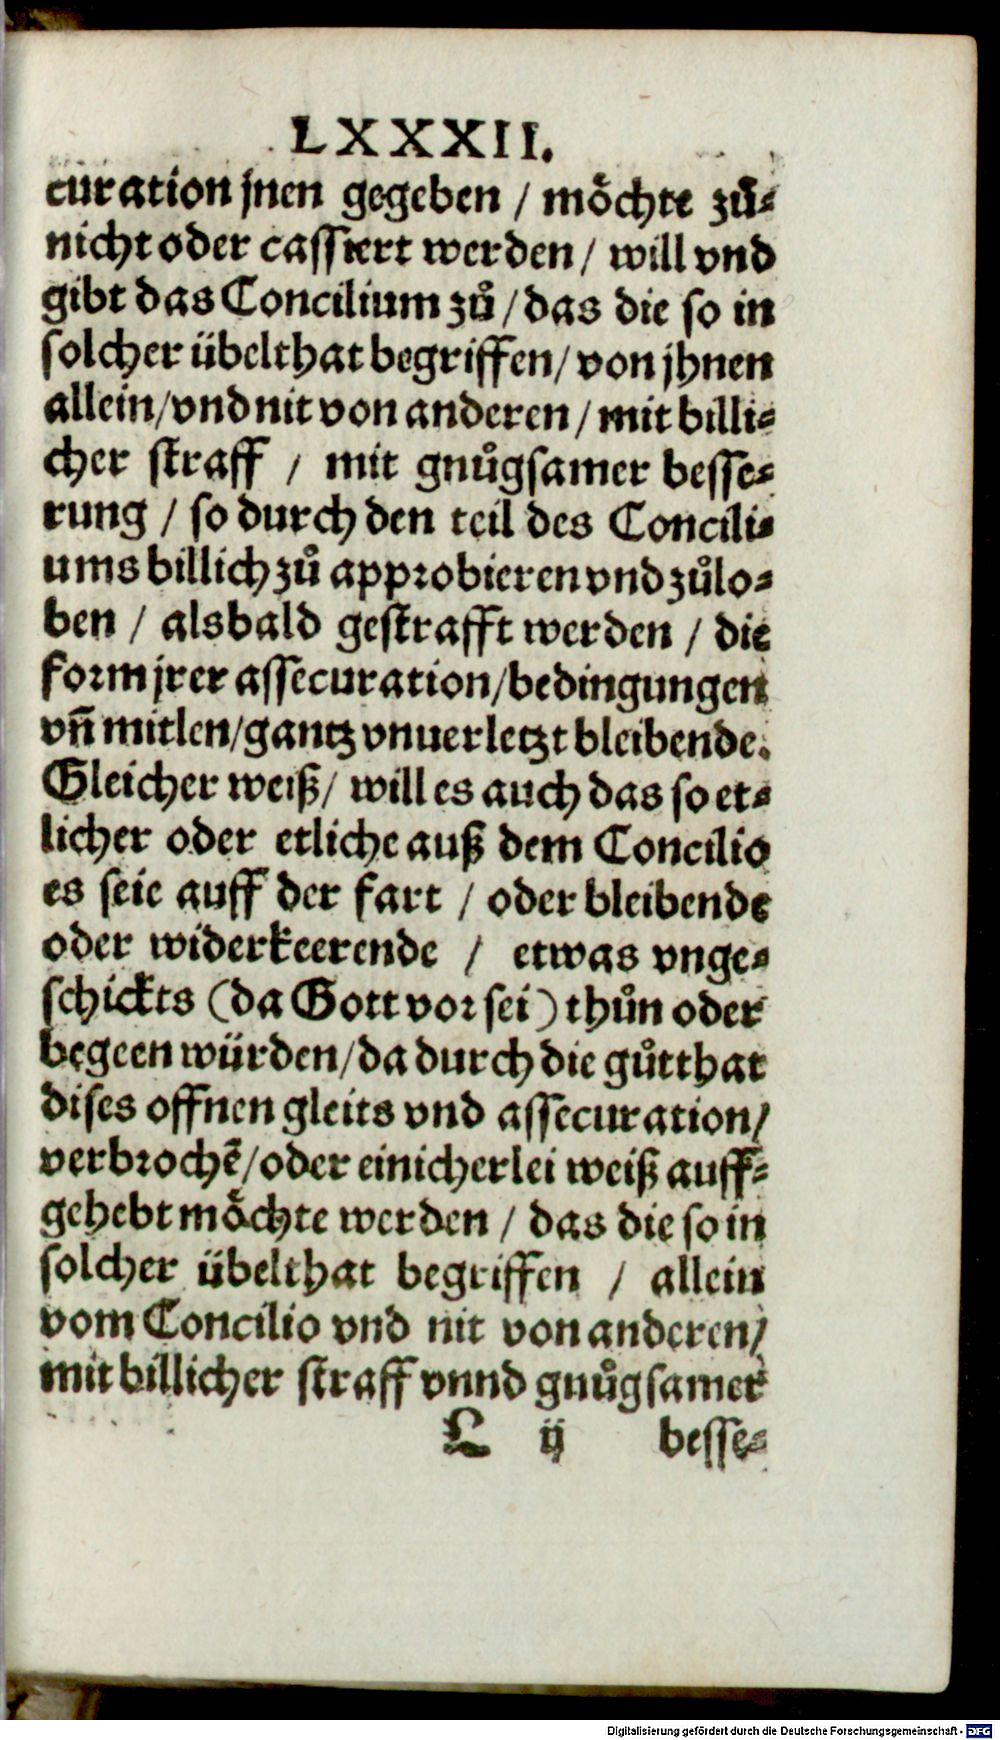 LXXXII.
curation jnen gegeben / möchte zů⸗
nicht oder cassiert werden / will vnd
gibt das Concilium zů / das die so in
solcher übelthat begriffen / von jhnen
allein / vnd nit von anderen / mit billi⸗
cher straff / mit gnůgsamer besse⸗
rung / so durch den teil des Concili⸗
ums billich zů approbieren vnd zůlo⸗
ben / alsbald gestrafft werden / die
form jrer assecuration / bedingungen
vn̄ mitlen / gantz vnuerletzt bleibende.
Gleicher weiß / will es auch das so et⸗
licher oder etliche auß dem Concilio
es seie auff der fart / oder bleibende
oder widerkeerende / etwas vnge⸗
schickts (da Gott vor sei) thůn oder
begeen würden / da durch die gůtthat
dises offnen gleits vnd assecuration /
verbrochē / oder einicherlei weiß auff⸗
gehebt möchte werden / das die so in
solcher übelthat begriffen / allein
vom Concilio vnd nit von anderen /
mit billicher straff vnnd gnůgsamer
L ij besse⸗
Digitalisierung gefördert durch die Deutsche Forschungsgemeinschaft - DFG